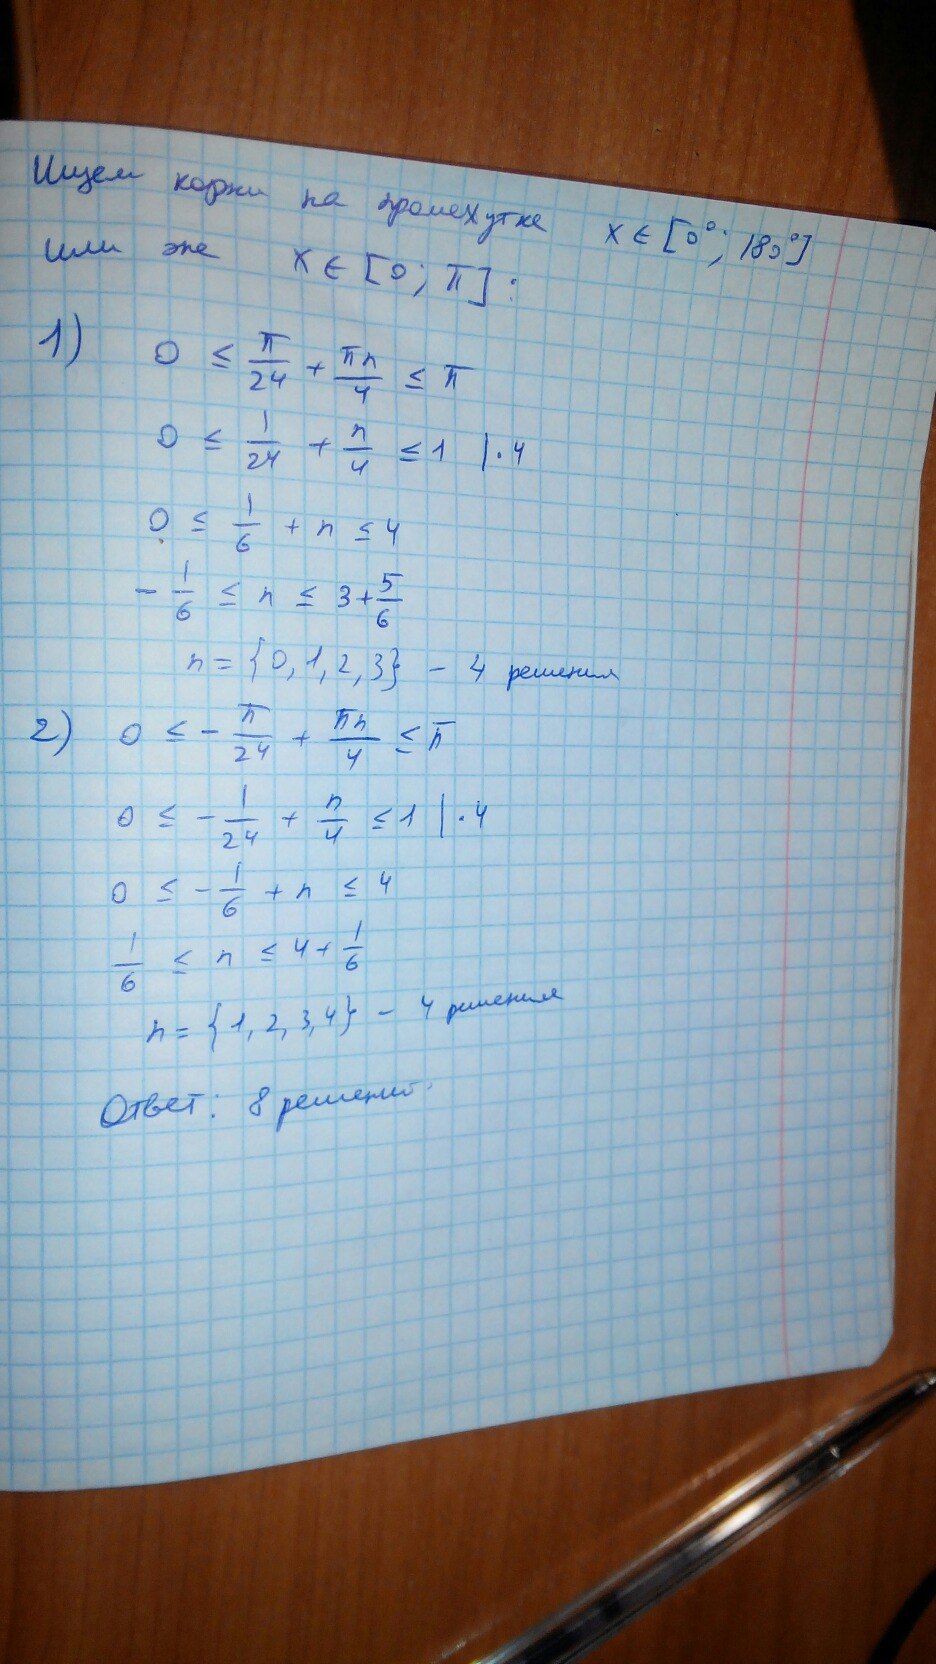 Ищем корни на промежутке x ∈ [0°; 180°]
или же x ∈ [0; π]:
1) 0 ≤ π/24 + πn/4 ≤ π
0 ≤ 1/24 + n/4 ≤ 1 | · 4
0 ≤ 1/6 + n ≤ 4
- 1/6 ≤ n ≤ 3 + 5/6
n = {0, 1, 2, 3} - 4 решения
2) 0 ≤ - π/24 + πn/4 ≤ π
0 ≤ - 1/24 + n/4 ≤ 1 | · 4
0 ≤ - 1/6 + n ≤ 4
1/6 ≤ n ≤ 4 + 1/6
n = {1, 2, 3, 4} - 4 решения
Ответ: 8 решений.